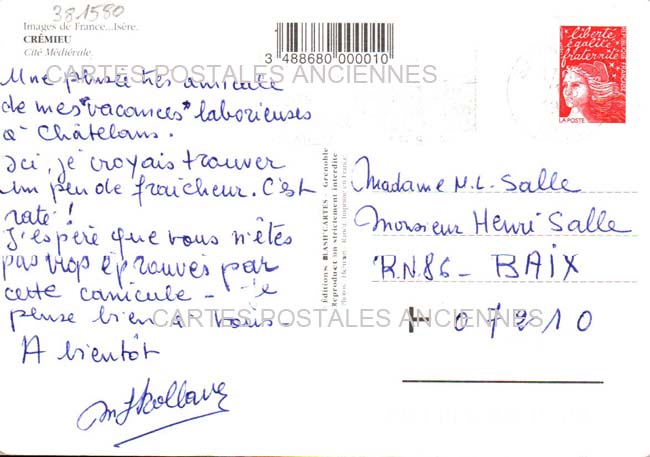 381580
Images de France...Isère.
CRÉMIEU
Cité Médiévale.
3 488680 000010
CARTES POSTALES ANCIENNES
Une pensée très amicale
de mes "vacances" laborieuses
à Châtelans.
Ici, je croyais trouver
un peu de fraîcheur. C'est
raté !
J'espère que vous n'êtes
pas trop éprouvés par
cette canicule - Je
pense bien à vous -
A bientôt
Éditions - Grenoble
Reproduction strictement interdite
liberté
égalité
fraternité
RÉPUBLIQUE FRANÇAISE
LA POSTE
Madame M.L. Salle
Monsieur Henri Salle
R.N.86 - BAIX
07210
CARTES POSTALES ANCIENNES